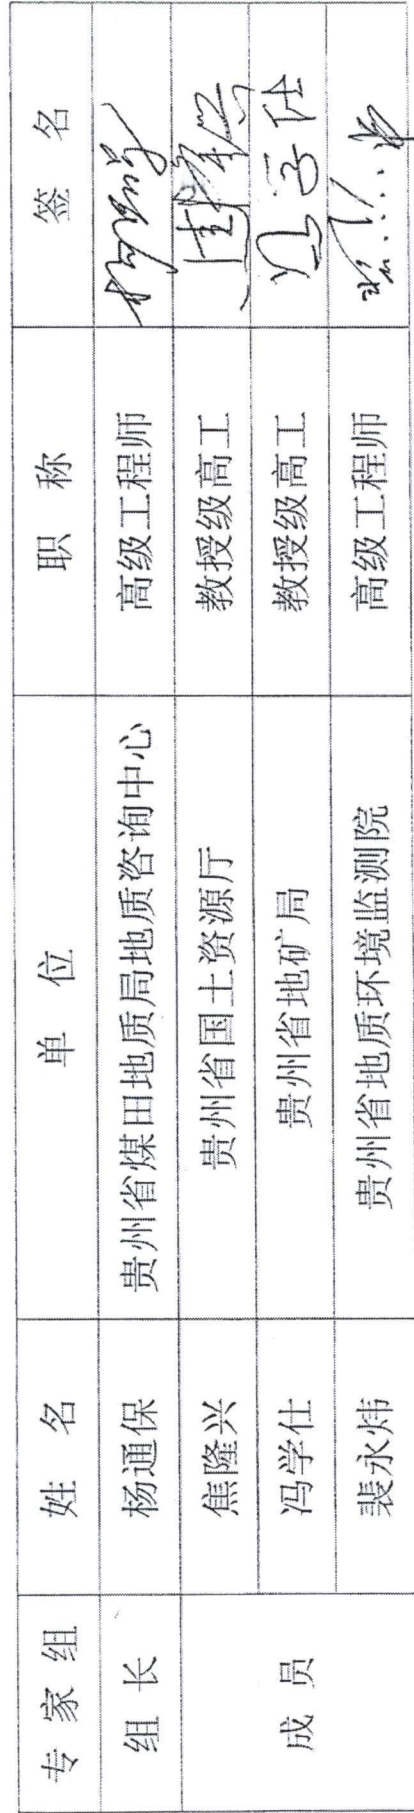 专 家 组 姓 名 单 位 职 称 签 名
组 长 杨通保 贵州省煤田地质局地质咨询中心 高级工程师
成 员 焦隆兴 贵州省国土资源厅 教授级高工
冯学仕 贵州省地矿局 教授级高工 冯学仕
裴永炜 贵州省地质环境监测院 高级工程师